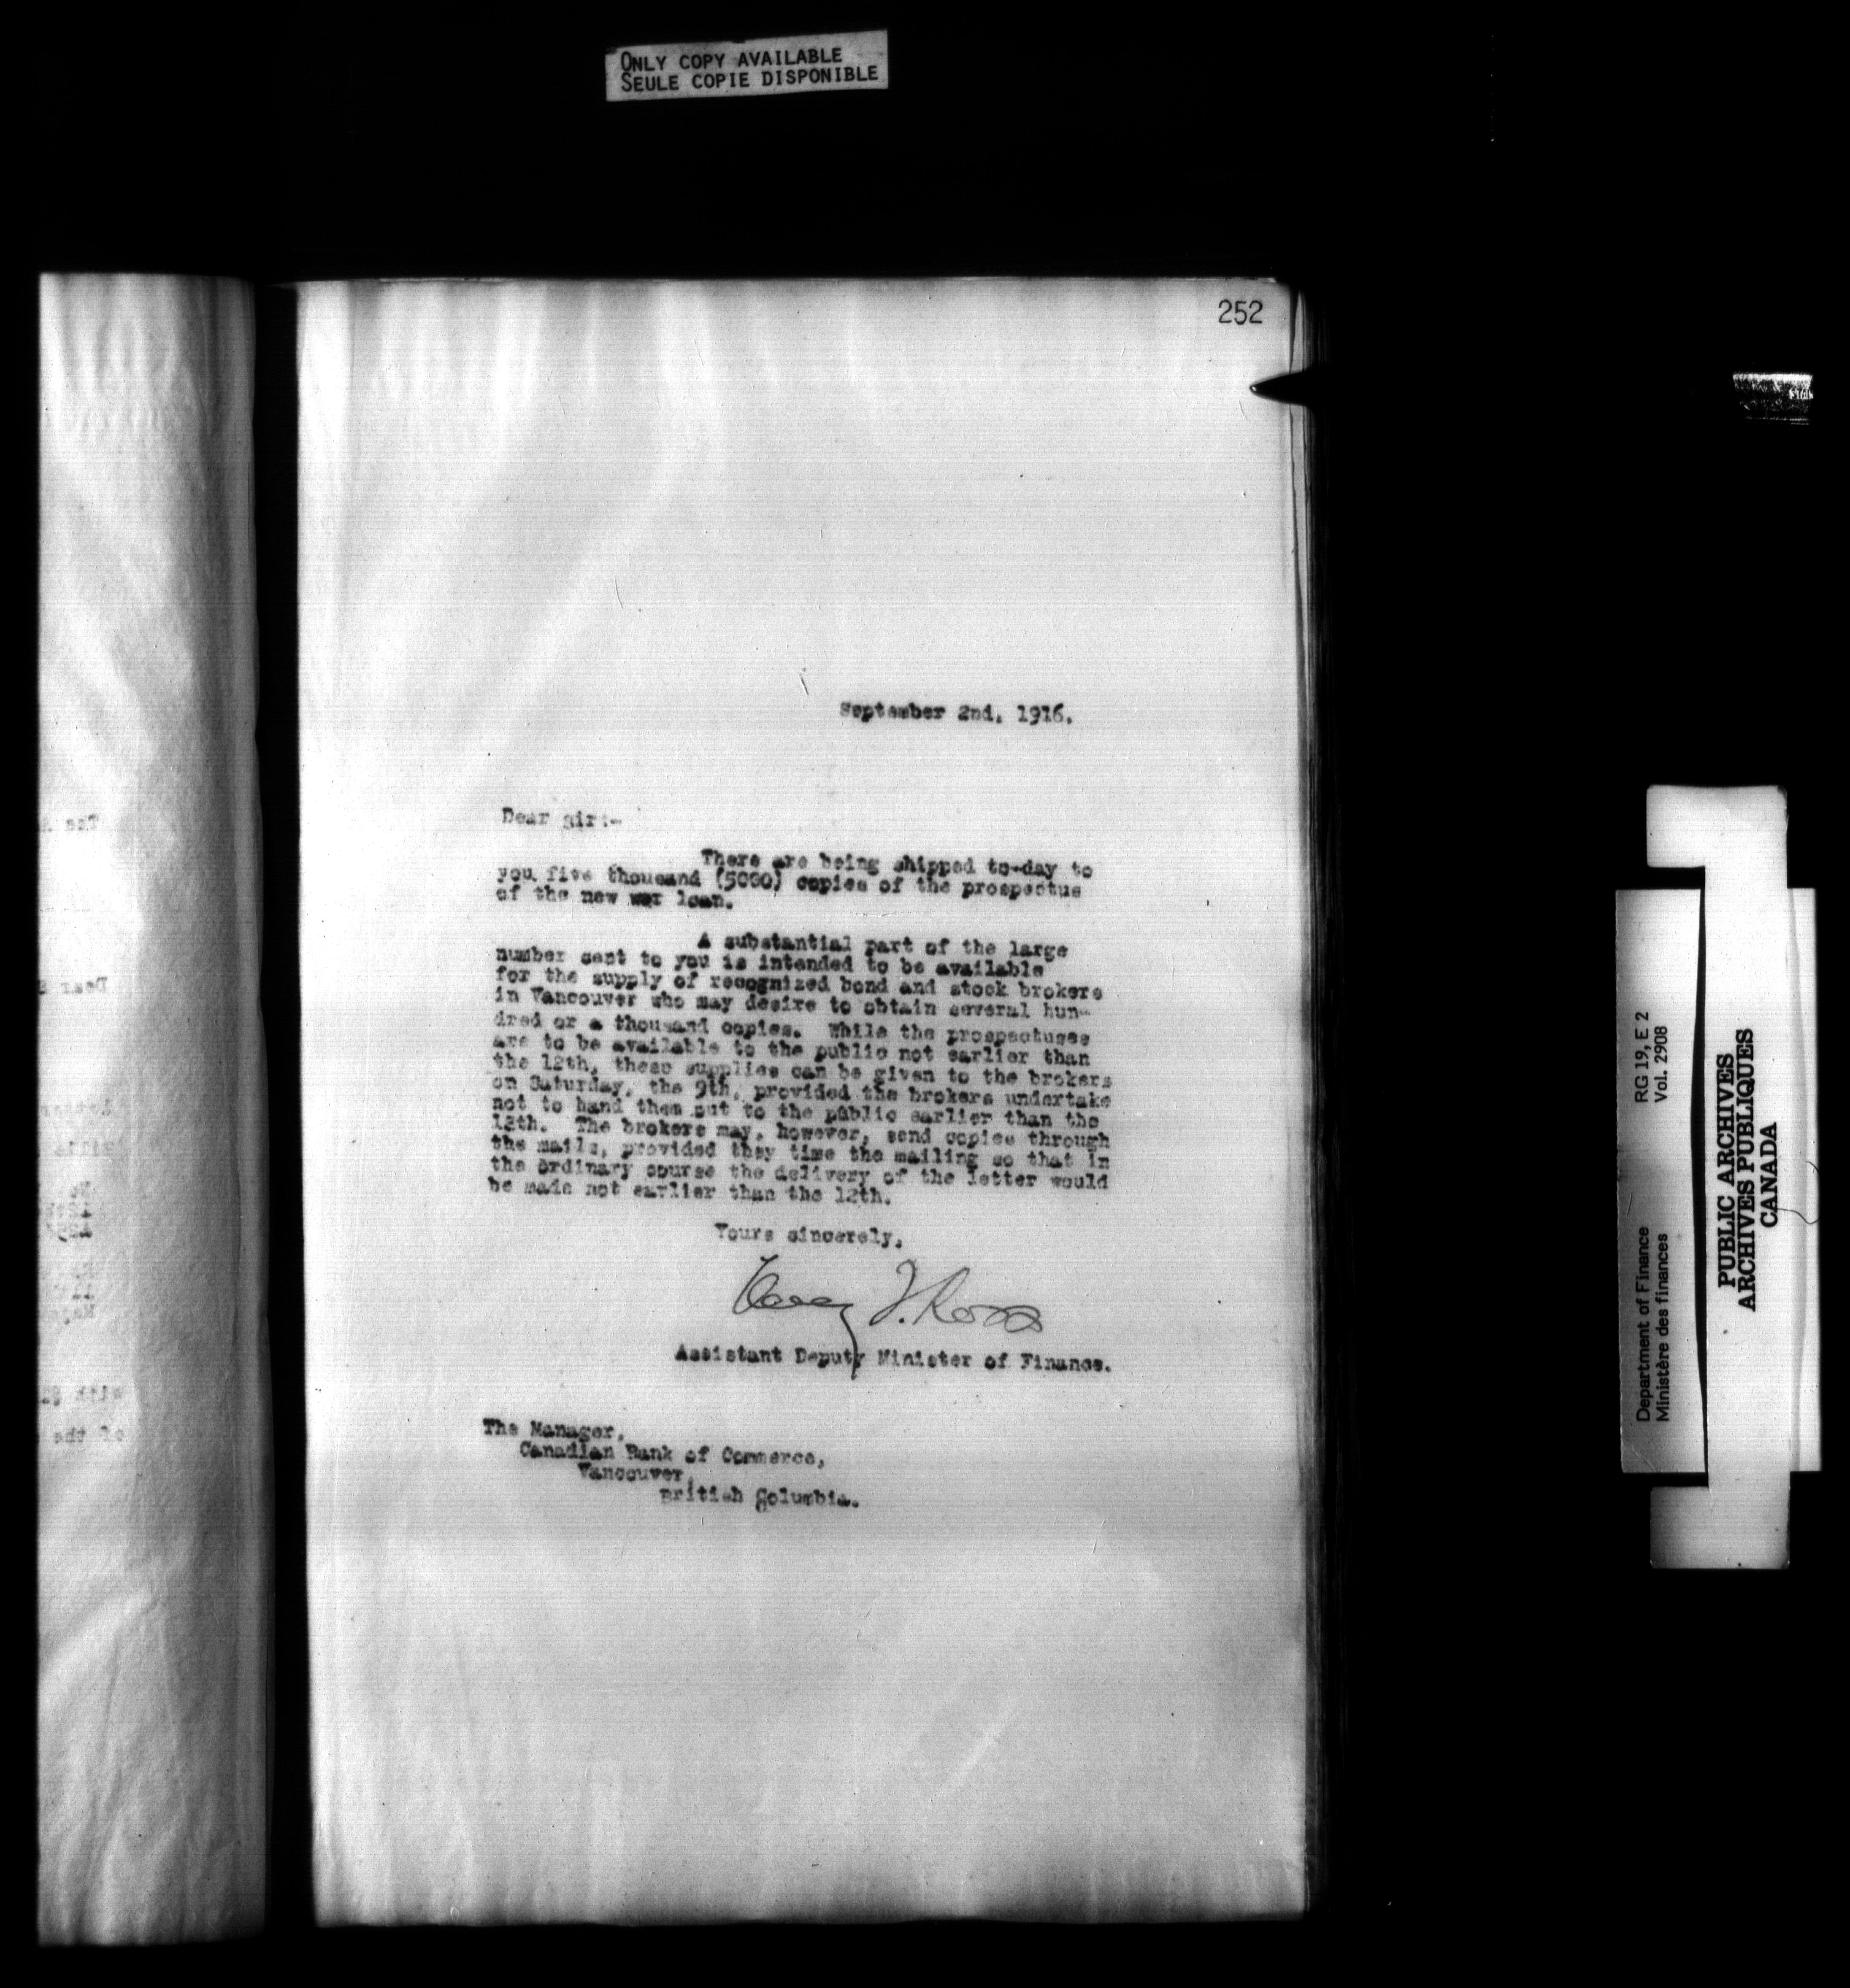 ONLY COPY AVAILABLE
SEULE COPIE DISPONIBLE
252
September 2nd, 1916.
Dear Sir:-
There are being shipped to-day to
you five thousand (5000) copies of the prospectus
of the new war loan.
A substantial part of the large
number sent to you is intended to be available
for the supply of recognized bond and stock brokers
in Vancouver who may desire to obtain several hun-
dred or a thousand copies. While the prospectuses
are to be available to the public not earlier than
the 12th, these supplies can be given to the brokers
on Saturday, the 9th, provided the brokers undertake
not to hand them out to the public earlier than the
12th. The brokers may, however, send copies through
the mails, provided they time the mailing so that in
the ordinary course the delivery of the letter would
be made not earlier than the 12th.
Yours sincerely,
Assistant Deputy Minister of Finance.
The Manager,
Canadian Bank of Commerce,
Vancouver,
British Columbia.
RG 19, E 2
Vol. 2908
Department of Finance
Ministère des finances
PUBLIC ARCHIVES
ARCHIVES PUBLIQUES
CANADA